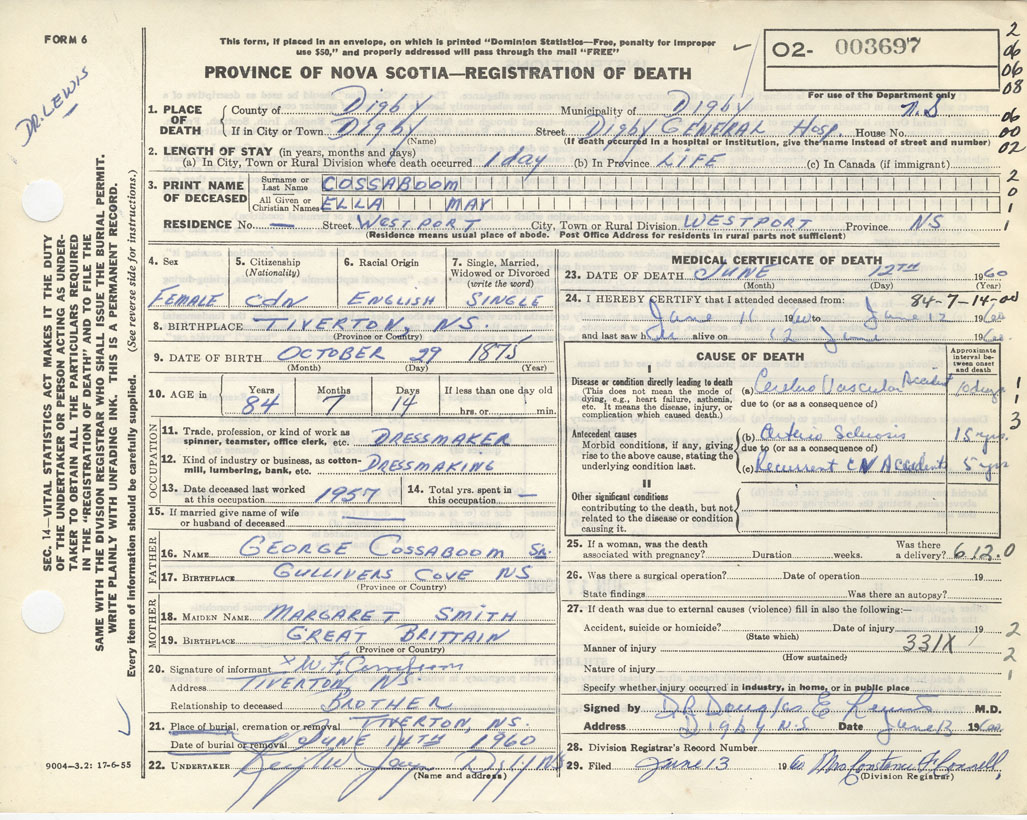 FORM 6
DR. LEWIS
This form, if placed in an envelope, on which is printed "Dominion Statistics—Free, penalty for improper
use $50," and properly addressed will pass through the mail "FREE"
02- 003697
For use of the Department only
PROVINCE OF NOVA SCOTIA—REGISTRATION OF DEATH
2
06
06
08
06
00
02
2
0
1
1
1. PLACE OF DEATH
County of Digby Municipality of Digby N.S
If in City or Town Digby Street Digby GENERAL Hosp. House No.
(Name) (If death occurred in a hospital or institution, give the name instead of street and number)
2. LENGTH OF STAY (in years, months and days)
(a) In City, Town or Rural Division where death occurred 1 day (b) In Province LIFE (c) In Canada (if immigrant)
3. PRINT NAME OF DECEASED
Surname or Last Name COSSABOOM
All Given or Christian Names ELLA MAY
RESIDENCE No. — Street WESTPORT City, Town or Rural Division WESTPORT Province NS
(Residence means usual place of abode. Post Office Address for residents in rural parts not sufficient)
4. Sex FEMALE
5. Citizenship (Nationality) CDN
6. Racial Origin ENGLISH
7. Single, Married, Widowed or Divorced (write the word) SINGLE
8. BIRTHPLACE TIVERTON, NS.
(Province or Country)
9. DATE OF BIRTH OCTOBER 29 1875
(Month) (Day) (Year)
10. AGE in Years 84 Months 7 Days 14 If less than one day old hrs. or min.
OCCUPATION
11. Trade, profession, or kind of work as spinner, teamster, office clerk, etc. DRESSMAKER
12. Kind of industry or business, as cotton-mill, lumbering, bank, etc. DRESSMAKING
13. Date deceased last worked at this occupation 1957
14. Total yrs. spent in this occupation —
15. If married give name of wife or husband of deceased
FATHER
16. NAME GEORGE COSSABOOM SR.
17. BIRTHPLACE GULLIVERS COVE NS
(Province or Country)
MOTHER
18. MAIDEN NAME MARGARET SMITH
19. BIRTHPLACE GREAT BRITTAIN
(Province or Country)
20. Signature of informant x W. F.
Address TIVERTON NS.
Relationship to deceased BROTHER
21. Place of burial, cremation or removal TIVERTON, NS.
Date of burial or removal JUNE 14TH 1960
22. UNDERTAKER
(Name and address)
MEDICAL CERTIFICATE OF DEATH
23. DATE OF DEATH JUNE 12TH 1960
(Month) (Day) (Year)
24. I HEREBY CERTIFY that I attended deceased from: 84-7-14-00
June 11 1960 to June 12 1960
and last saw her alive on 12 June 1960.
CAUSE OF DEATH
Approximate interval between onset and death
I
Disease or condition directly leading to death
(This does not mean the mode of dying, e.g., heart failure, asthenia, etc. It means the disease, injury, or complication which caused death.)
(a) Cerebro Vascular Accident 10 days
due to (or as a consequence of)
Antecedent causes
Morbid conditions, if any, giving rise to the above cause, stating the underlying condition last.
(b) Arterio Sclerosis 15 yrs.
due to (or as a consequence of)
(c) Recurrent C V Accidents 5 yrs
II
Other significant conditions
contributing to the death, but not related to the disease or condition causing it.
1
3
25. If a woman, was the death associated with pregnancy? Duration weeks. Was there a delivery? 612.0
26. Was there a surgical operation? Date of operation 19
State findings Was there an autopsy?
27. If death was due to external causes (violence) fill in also the following:—
Accident, suicide or homicide? Date of injury 19
(State which)
Manner of injury 331X
(How sustained)
Nature of injury
2
2
1
Specify whether injury occurred in industry, in home, or in public place
Signed by DR Douglas E Lewis M.D.
Address Digby N.S Date June 13 1960
28. Division Registrar's Record Number
29. Filed June 13 1960 Mrs Constance
(Division Registrar)
SEC. 14—VITAL STATISTICS ACT MAKES IT THE DUTY
OF THE UNDERTAKER OR PERSON ACTING AS UNDER-
TAKER TO OBTAIN ALL THE PARTICULARS REQUIRED
IN THE "REGISTRATION OF DEATH" AND TO FILE THE
SAME WITH THE DIVISION REGISTRAR WHO SHALL ISSUE THE BURIAL PERMIT.
WRITE PLAINLY WITH UNFADING INK. THIS IS A PERMANENT RECORD.
Every item of information should be carefully supplied. (See reverse side for instructions.)
9004—3.2: 17-6-55